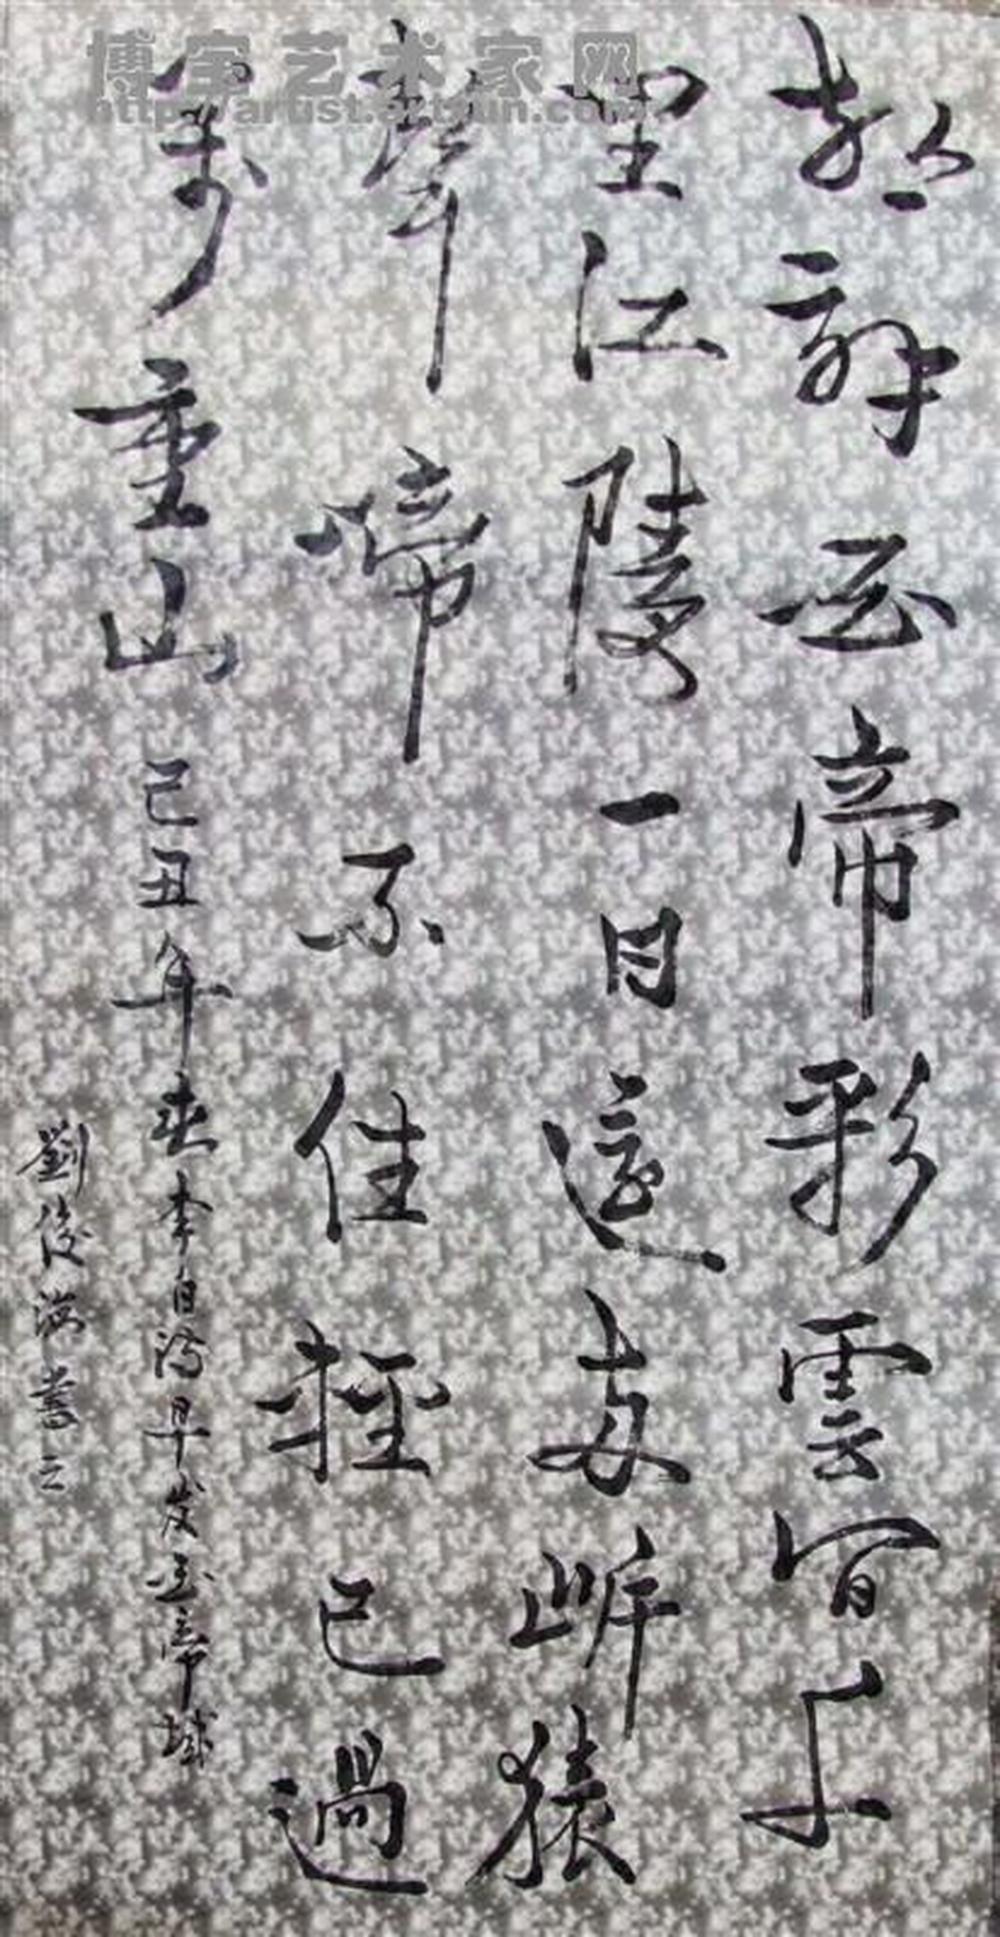 博宝艺术家网
http://artist.artxun.com
朝辭白帝彩雲間千
里江陵一日還兩岸猿
聲啼不住輕已過
萬重山 己丑年春李白诗早发白帝城
劉俊書之